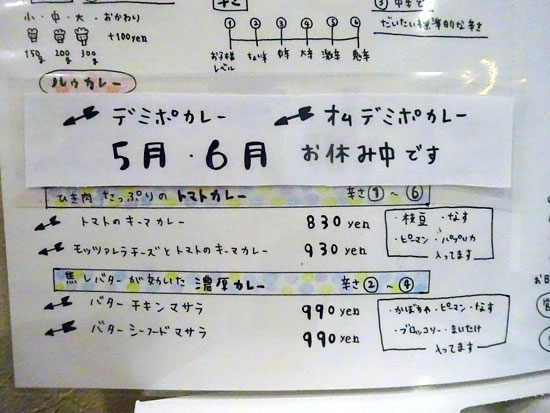 小・中・大・おかわり
+100yen
150g 200g 300g
① ② ③ ④ ⑤ ⑥
お子様レベル ちょい辛 中辛 大辛 激辛 鬼辛
だいたい標準的な辛さ
ルゥカレー
デミポカレー オムデミポカレー
5月・6月 お休み中です
ひき肉たっぷりのトマトカレー 辛さ①～⑥
トマトのキーマカレー 830yen
・枝豆・なす
モッツァレラチーズとトマトのキーマカレー 930yen
・ピーマン・パプリカ
入ってます
焦しバターが効いた濃厚カレー 辛さ②～④
バターチキンマサラ 990yen
・かぼちゃ・ピーマン・なす
バターシーフードマサラ 990yen
・ブロッコリー・まいたけ
入ってます